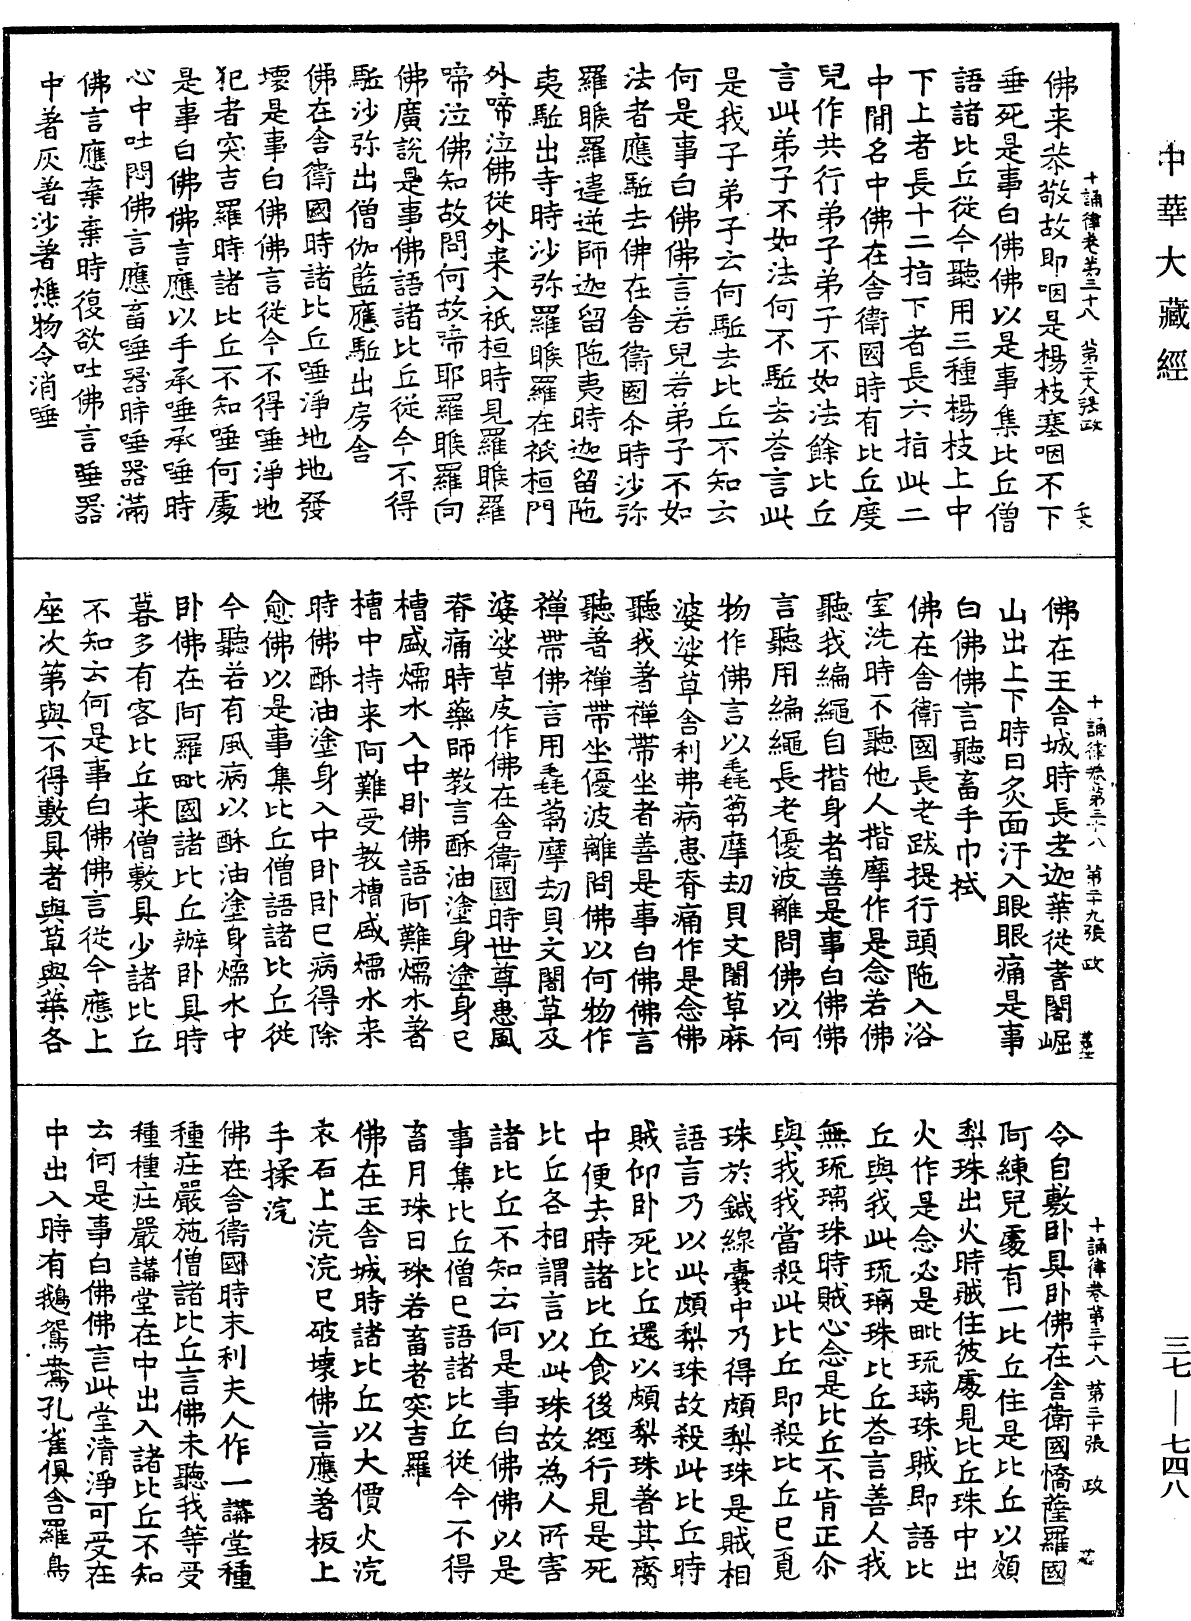 中華大藏經
十誦律卷第三十八 第二十八張 政
佛来恭敬故即咽是楊枝塞咽不下
垂死是事白佛佛以是事集比丘僧
語諸比丘從今聽用三種楊枝上中
下上者長十二指下者長六指此二
中間名中佛在舍衛國時有比丘度
兒作共行弟子弟子不如法餘比丘
言此弟子不如法何不駈去荅言此
是我子弟子云何駈去比丘不知云
何是事白佛佛言若兒若弟子不如
法者應駈去佛在舍衛國尒時沙弥
羅睺羅違逆師迦留陁夷時迦留陁
夷駈出寺時沙弥羅睺羅在祇桓門
外啼泣佛從外来入祇桓時見羅睺羅
啼泣佛知故問何故啼耶羅睺羅向
佛廣說是事佛語諸比丘從今不得
駈沙弥出僧伽藍應駈出房舍
佛在舍衛國時諸比丘唾淨地地發
壞是事白佛佛言從今不得唾淨地
犯者突吉羅時諸比丘不知唾何處
是事白佛佛言應以手承唾承唾時
心中吐悶佛言應畜唾器時唾器滿
佛言應棄棄時復欲吐佛言唾器
中著灰著沙著燋物令消唾
十誦律卷第三十八 第二十九張 政
佛在王舍城時長老迦葉從耆闍崛
山出上下時日炙面汗入眼眼痛是事
白佛佛言聽畜手巾拭
佛在舍衛國長老跋提行頭陁入浴
室洗時不聽他人揩摩作是念若佛
聽我編繩自揩身者善是事白佛佛
言聽用編繩長老優波離問佛以何
物作佛言以毳芻摩劫貝文闍草麻
婆娑草舍利弗病患脊痛作是念佛
聽我著禪帶坐者善是事白佛佛言
聽著禪帶坐優波離問佛以何物作
禪帶佛言用毳芻摩劫貝文闍草及
婆娑草皮作佛在舍衛國時世尊患風
脊痛時藥師教言酥油塗身塗身已
槽盛煗水入中卧佛語阿難煗水著
槽中持来阿難受教槽盛煗水来
時佛酥油塗身入中卧卧已病得除
愈佛以是事集比丘僧語諸比丘從
今聽若有風病以酥油塗身煗水中
卧佛在阿羅毗國諸比丘辦卧具時
暮多有客比丘来僧敷具少諸比丘
不知云何是事白佛佛言從今應上
座次第與不得敷具者與草與葉各
十誦律卷第三十八 第三十張 政
令自敷卧具卧佛在舍衛國憍薩羅國
阿練兒處有一比丘住是比丘以頗
梨珠出火時賊住彼處見比丘珠中出
火作是念必是毗琉璃珠賊即語比
丘與我此琉璃珠比丘荅言善人我
無琉璃珠時賊心念是比丘不肯正尒
與我我當殺此比丘即殺比丘已覓
珠於鍼線囊中乃得頗梨珠是賊相
語言乃以此頗梨珠故殺此比丘時
賊仰卧死比丘還以頗梨珠著其齎
中便去時諸比丘食後經行見是死
比丘各相謂言以此珠故為人所害
諸比丘不知云何是事白佛佛以是
事集比丘僧已語諸比丘從今不得
畜月珠日珠若畜者突吉羅
佛在王舍城時諸比丘以大價火浣
衣石上浣浣已破壞佛言應著板上
手揉浣
佛在舍衛國時末利夫人作一講堂種
種庄嚴施僧諸比丘言佛未聽我等受
種種庄嚴講堂在中出入諸比丘不知
云何是事白佛佛言此堂清淨可受在
中出入時有鵝鴛鴦孔雀俱舍羅鳥
三七—七四八